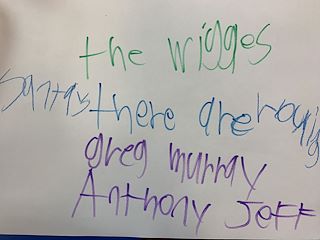 the wigges
Santa's there are
greg murray
Anthony Jeff